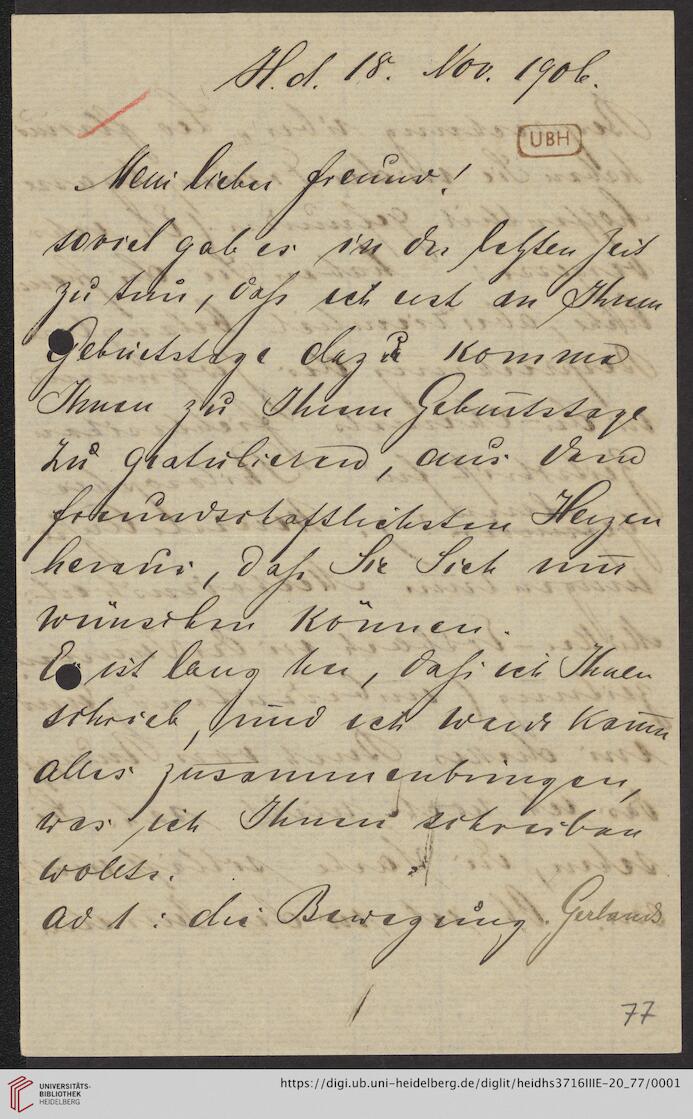 H. d. 18. Nov. 1906.
UBH
Mein lieber Freund!
soviel gab es in der letzten Zeit
zu tun, daß ich erst an Ihrem
Geburtstage dazu komme
Ihnen zu Ihrem Geburtstage
zu gratulieren, aus dem
freundschaftlichsten Herzen
heraus, daß Sie Sich nur
wünschen können.
Es ist lang her, daß ich Ihnen
schrieb, und ich werde kaum
alles zusammenbringen,
was ich Ihnen schreiben
wollte.
ad 1: die Bewegung Gerlands
77
UNIVERSITÄTS-
BIBLIOTHEK
HEIDELBERG
https://digi.ub.uni-heidelberg.de/diglit/heidhs3716IIIE-20_77/0001